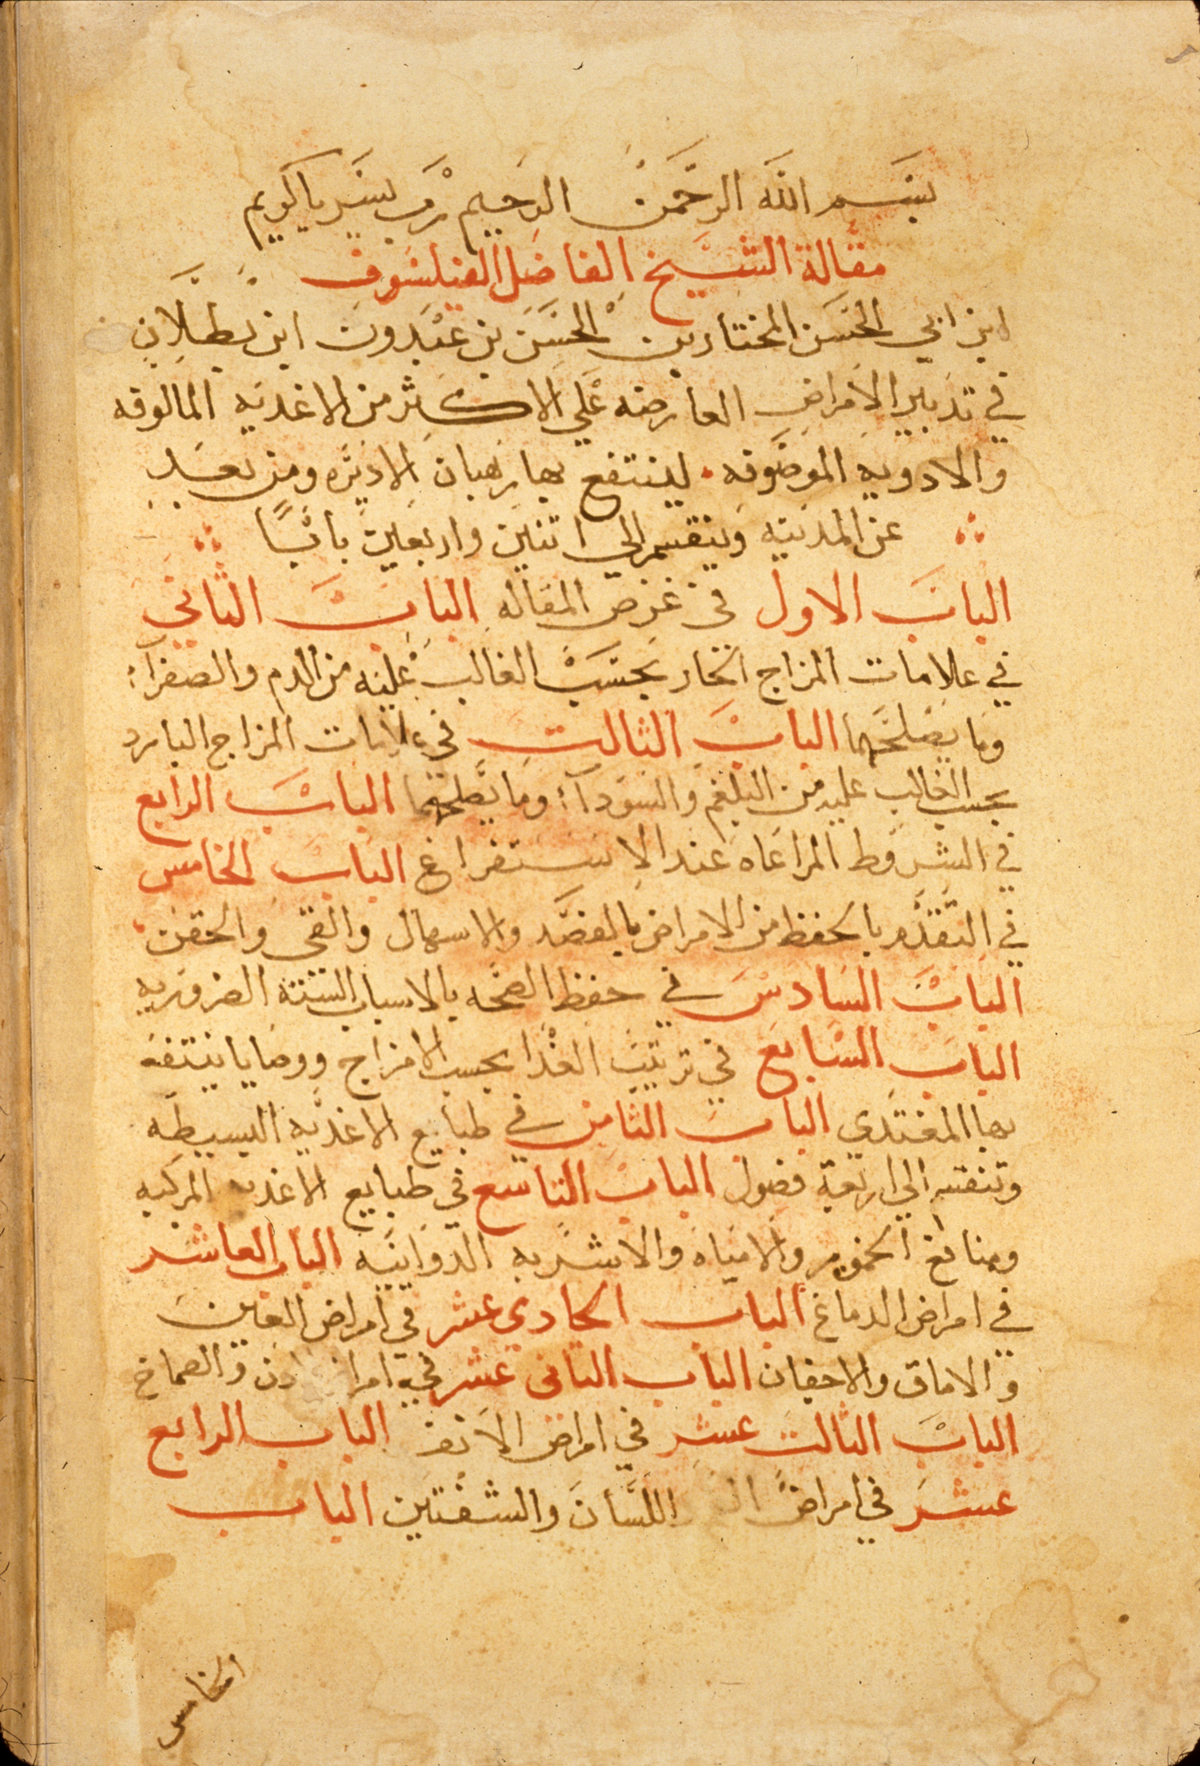 بسم الله الرحمن الرحيم رب يسر ياكريم
مقالة الشيخ الفاضل الفيلسوف
ابن ابي الحسن المختار بن الحسن بن عبدون ابن بطلان
في تدبير الامراض العارضه علي الاكثر من الاغديه المالوفه
والادويه الموضوفه لينتفع بها رهبان الاديره ومن بعد
عن المدينه وينقسم الي اتنين واربعين بابًا
الباب الاول في غرض المقاله الباب الثاني
في علامات المزاج الحار بحسب الغالب عليه من الدم والصفراء
وما يصلحها الباب الثالت في علامات المزاج البارد
بحسب الغالب عليه من البلغم والسوداء وما يصلحهما الباب الرابع
في الشروط المراعاه عند الاستفراغ الباب الخامس
في التقدّم بالحفظ من الامراض بالفصد والاسهال والقي والحقن
الباب السادس في حفظ الصحه بالاسباب الستة الضروريه
الباب السابع في ترتيب الغدا بحسب الامزاج ووصايا ينتفع
بها المغتدي الباب الثامن في طبايع الاغديه البسيطه
وتنقسم الي اربعة فصول الباب التاسع في طبايع الاغديه المركبه
ومنافع الخمور والامياه والاشربه الدوائيه الباب العاشر
في امراض الدماغ الباب الحادي عشر في امراض العين
والاماق والاجفان الباب التاني عشر في والصماخ
الباب الثالت عشر في امراض الانف الباب الرابع
عشر في امراض اللسان والشفتين الباب
الخامس